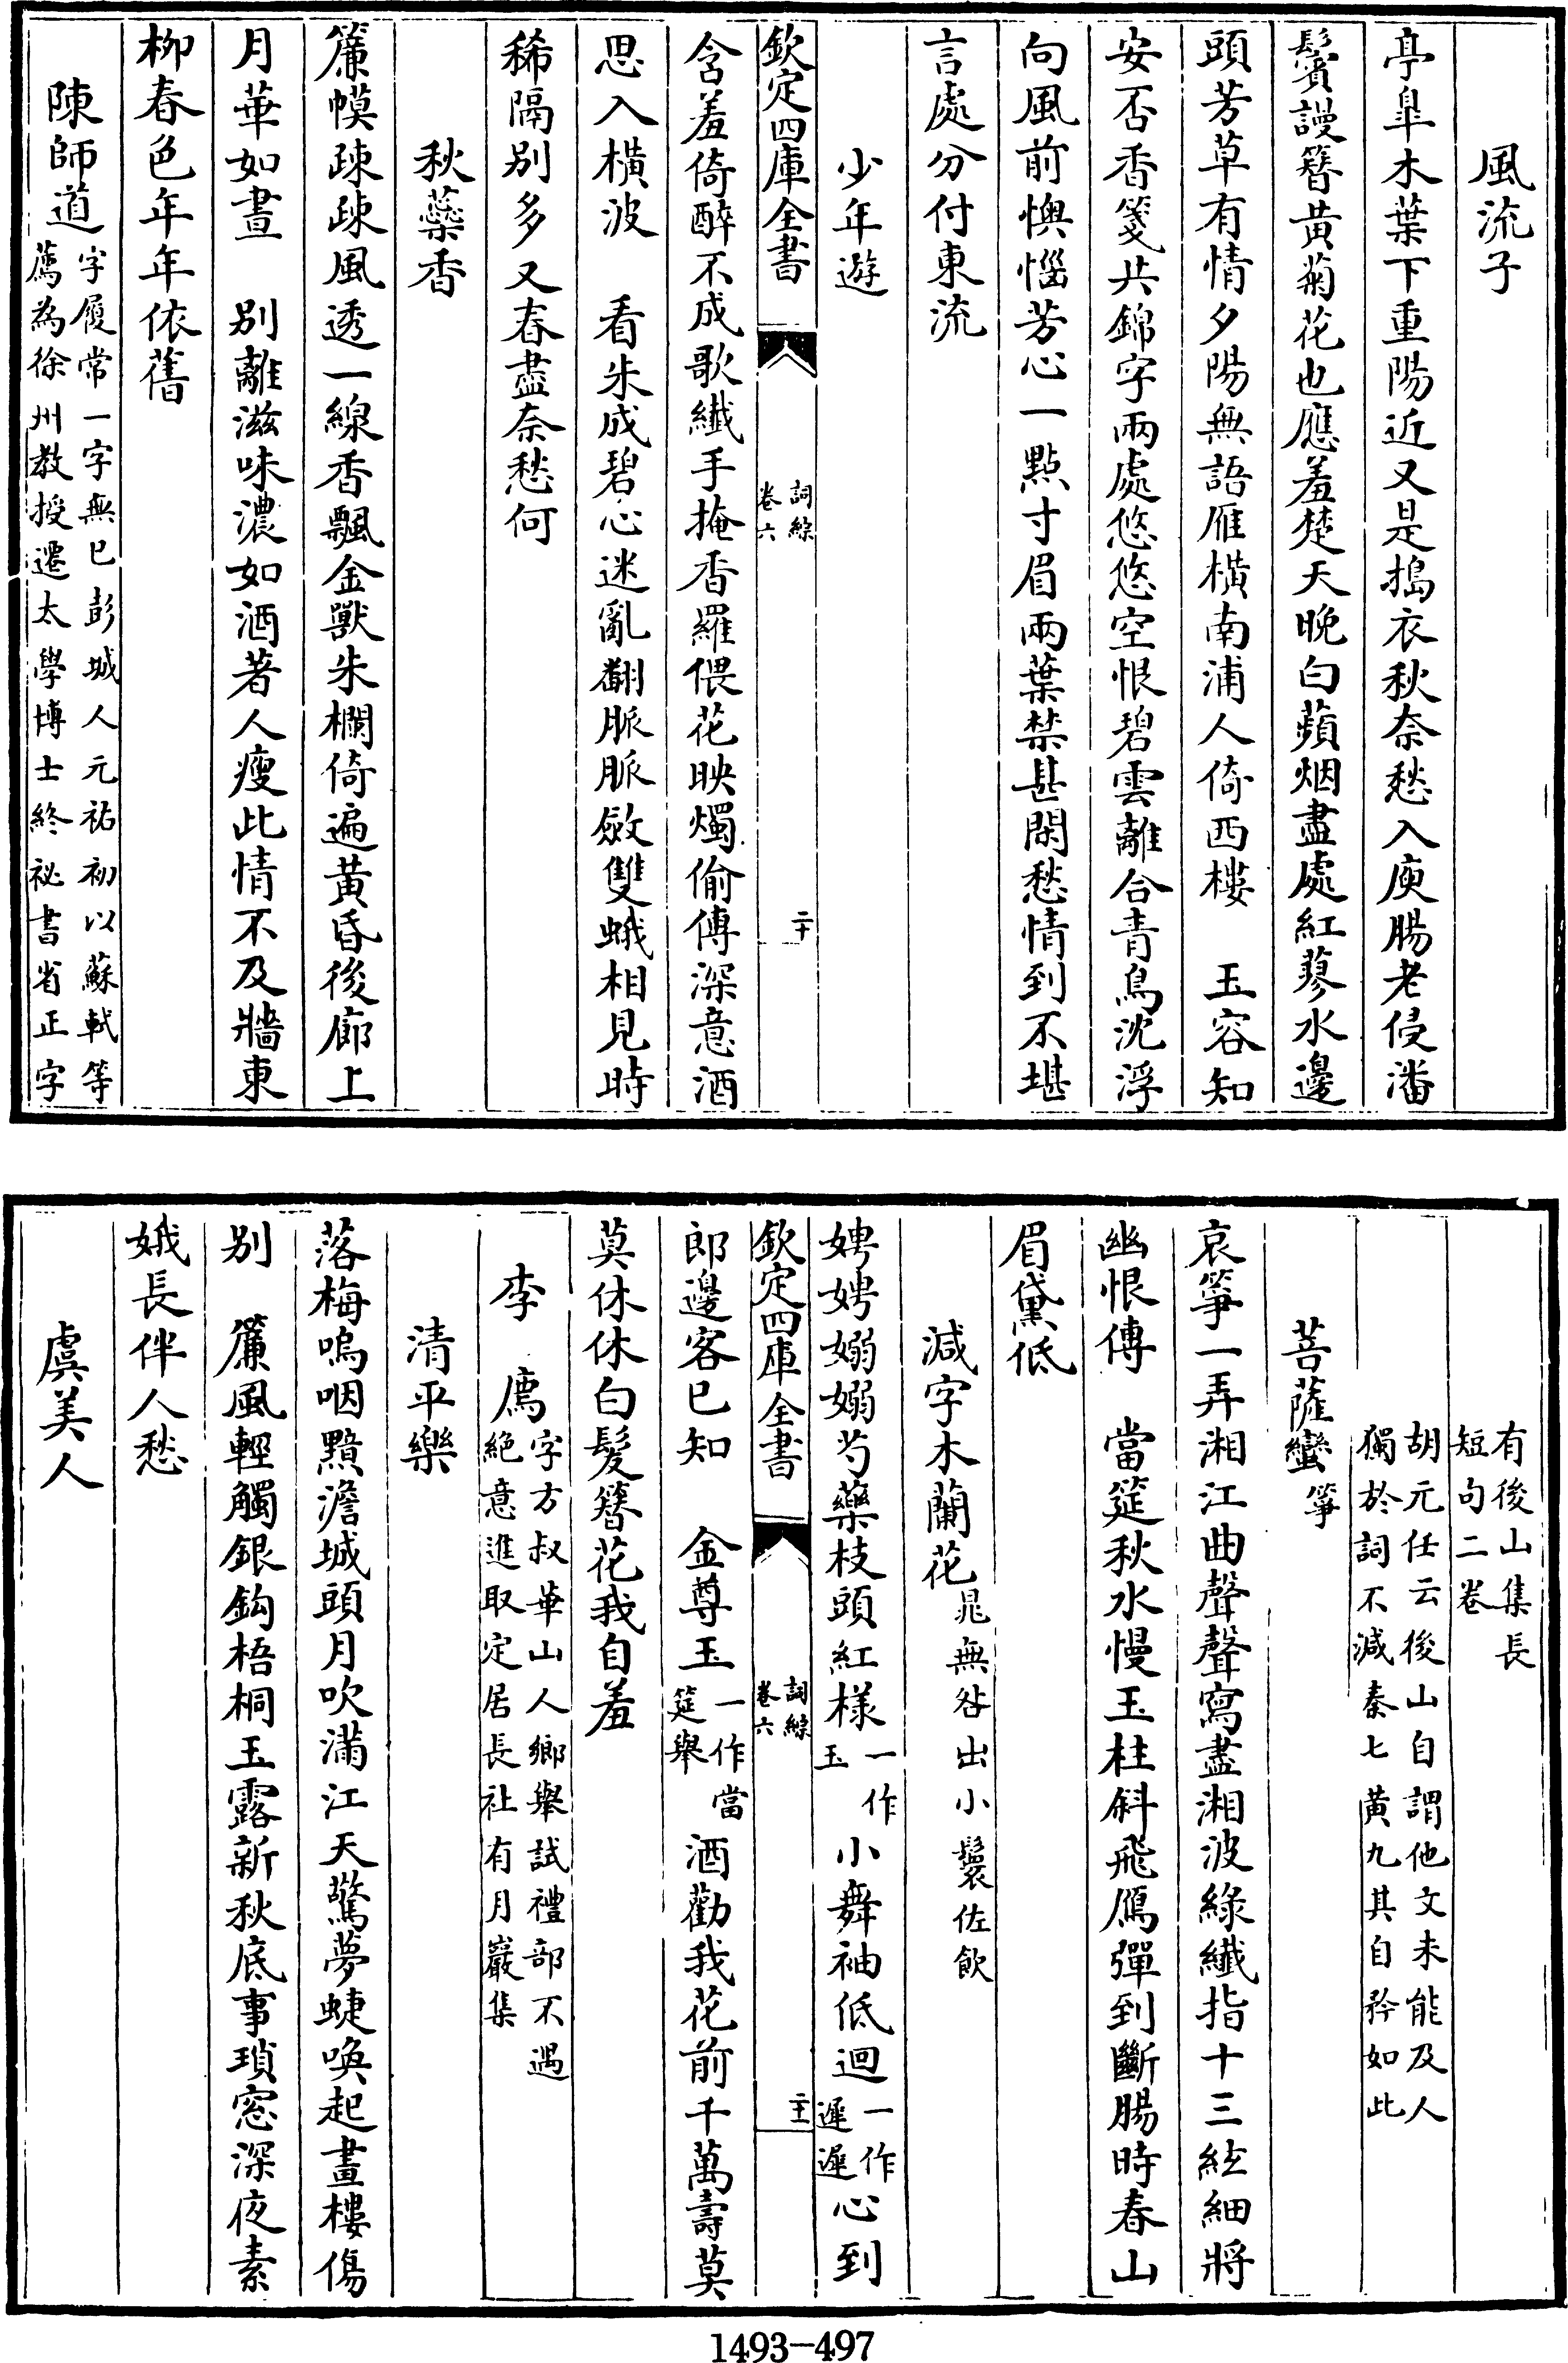 風流子
亭臯木葉下重陽近又是搗衣秋奈愁入庾腸老侵潘
鬢謾簪黄菊花也應羞楚天晚白蘋烟盡處紅蓼水邊
頭芳草有情夕陽無語雁横南浦人倚西樓　玉容知
安否香箋共錦字兩處悠悠空恨碧雲離合青鳥沈浮
向風前懊惱芳心一點寸眉兩葉禁甚閑愁情到不堪
言處分付東流
少年遊
欽定四庫全書
詞綜
卷六
二十
含羞倚醉不成歌纎手掩香羅偎花映燭偷傳深意酒
思入横波　看朱成碧心迷亂翻脈脈斂雙蛾相見時
稀隔别多又春盡奈愁何
秋蘂香
簾幙疎疎風透一線香飄金獸朱欄倚遍黄昏後廊上
月華如晝　别離滋味濃如酒著人瘦此情不及牆東
柳春色年年依舊
陳師道
字履常一字無已彭城人元祐初以蘇軾等
薦為徐州教授遷太學博士終祕書省正字
有後山集長
短句二卷
胡元任云後山自謂他文未能及人
獨於詞不減秦七黄九其自矜如此
菩薩蠻箏
哀箏一弄湘江曲聲聲寫盡湘波綠纎指十三絃細將
幽恨傳　當筵秋水慢玉柱斜飛鴈彈到斷腸時春山
眉黛低
減字木蘭花
晁無咎出小鬟佐飲
娉娉嫋嫋芍藥枝頭紅樣
一作
玉
小舞袖低迴
一作
遲遲
心到
欽定四庫全書
詞綜
卷六
二十一
郎邊客已知　金尊玉
一作當
筵舉
酒勸我花前千萬壽莫
莫休休白髮簪花我自羞
李　廌
字方叔華山人鄉舉試禮部不遇
絶意進取定居長社有月巖集
清平樂
落梅嗚咽黯澹城頭月吹滿江天驚夢蜨喚起畫樓傷
别　簾風輕觸銀鈎梧桐玉露新秋底事瑣窓深夜素
娥長伴人愁
虞美人
1493-497